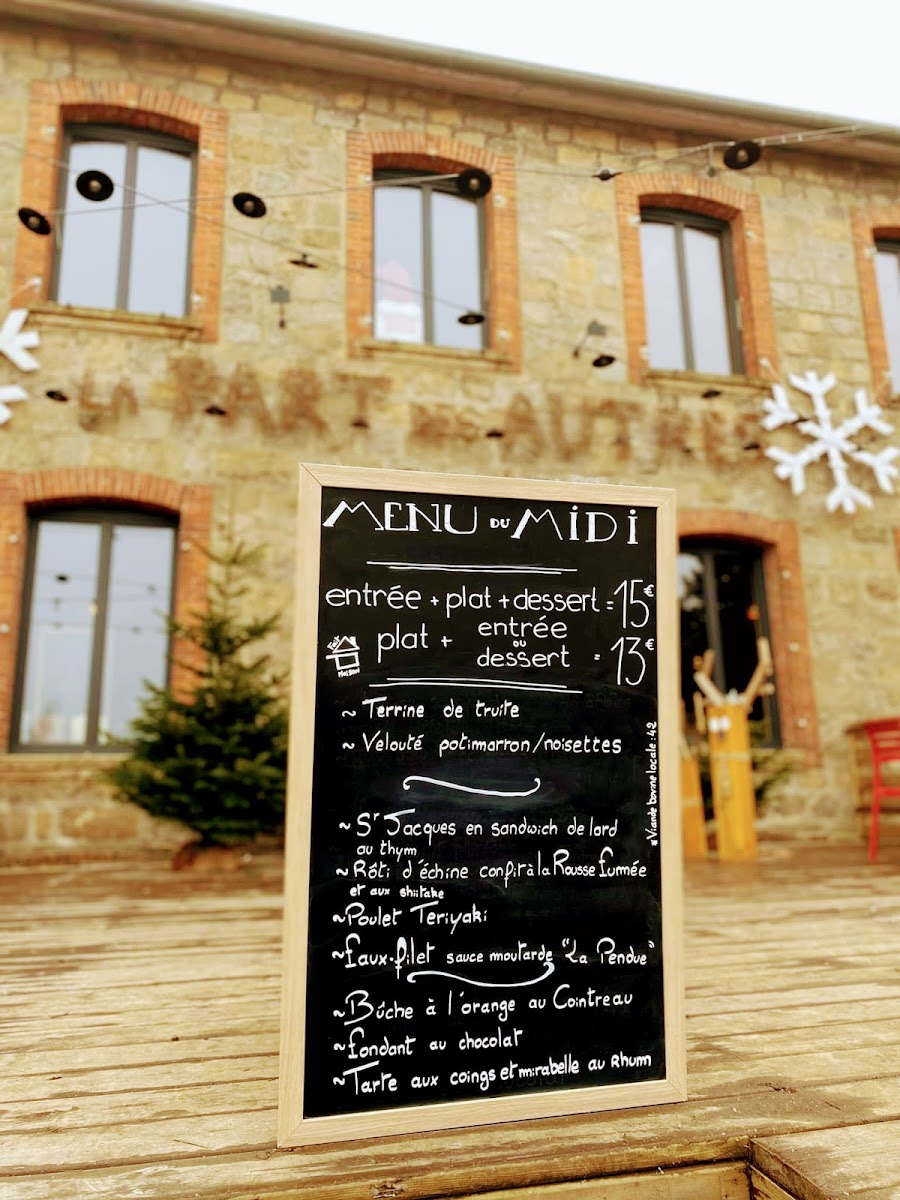 LA PART DES AUTRES
MENU DU MiDi
entrée + plat + dessert = 15€
plat + entrée ou dessert = 13€
Fait Maison
~ Terrine de truite
~ Velouté potimarron/noisettes
~ St Jacques en sandwich de lard
au thym
~ Rôti d'échine confit à la Rousse fumée
et aux shiitake
~ Poulet Teriyaki
~ faux-filet sauce moutarde "La Pendue"
~ Bûche à l'orange au Cointreau
~ fondant au chocolat
~ Tarte aux coings et mirabelle au Rhum
*Viande bovine locale : 42